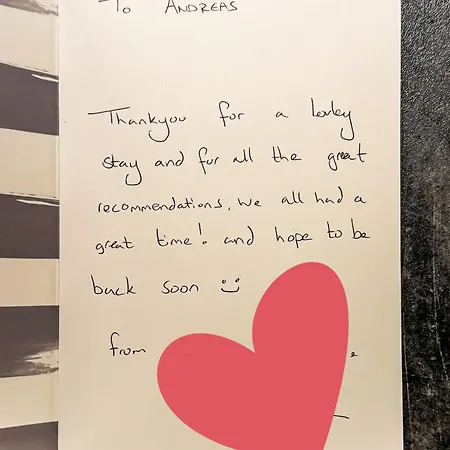 To ANDREAS
Thankyou for a lovley
stay and for all the great
recommendations, we all had a
great time! and hope to be
back soon :)
from